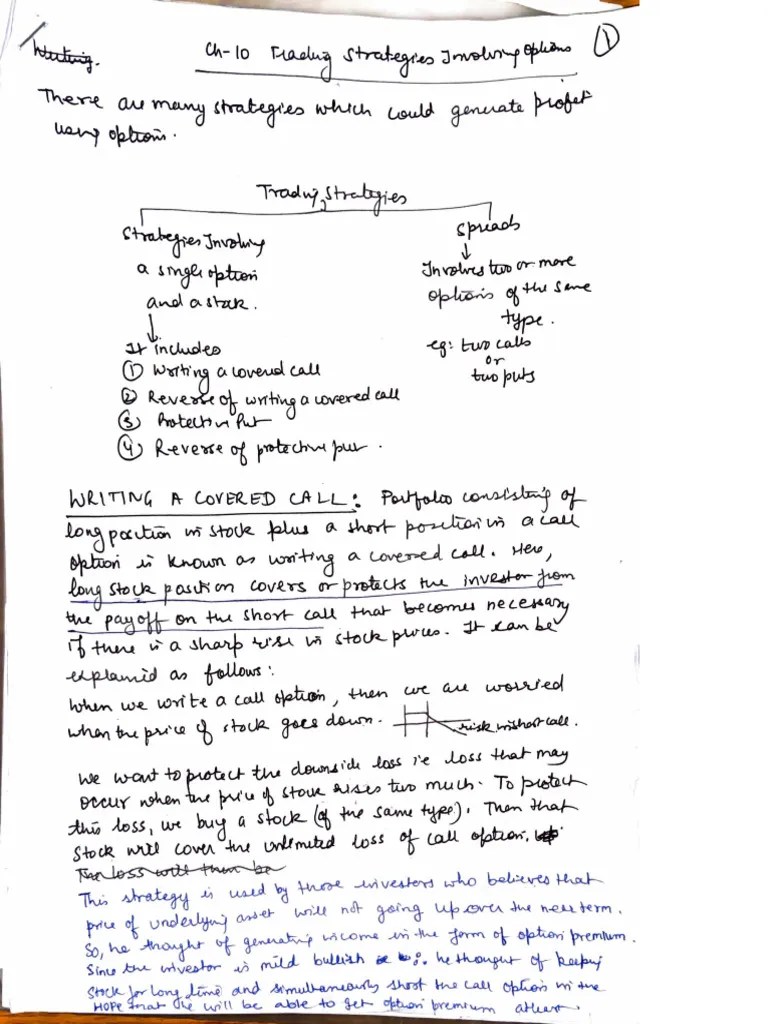 Writing.
Ch-10 Trading Strategies Involving Options ①
There are many strategies which could generate profit
using options.
Trading Strategies
Strategies Involving
a single option
and a stock.
It includes
① Writing a covered call
② Reverse of writing a covered call
③ Protective Put
④ Reverse of protective put.
Spreads
Involves two or more
options of the same
type.
eg: two calls
or
two puts
WRITING A COVERED CALL: Portfolio consisting of
long position in stock plus a short position in a call
option is known as writing a covered call. Here,
long stock position covers or protects the investor from
the payoff on the short call that becomes necessary
if there is a sharp rise in stock prices. It can be
explained as follows:
When we write a call option, then we are worried
when the price of stock goes down. risk in short call.
We want to protect the downside loss i.e loss that may
occur when the price of stock rises two much. To protect
this loss, we buy a stock (of the same type). Then that
stock will cover the unlimited loss of call option.
The loss will then be
This strategy is used by those investors who believes that
price of underlying asset will not going up over the near term.
So, he thought of generating income in the form of option premium.
Since the investor is mild bullish he thought of keeping
stock for long time and simultaneously short the call option in the
HOPE that he will be able to get option premium atleast